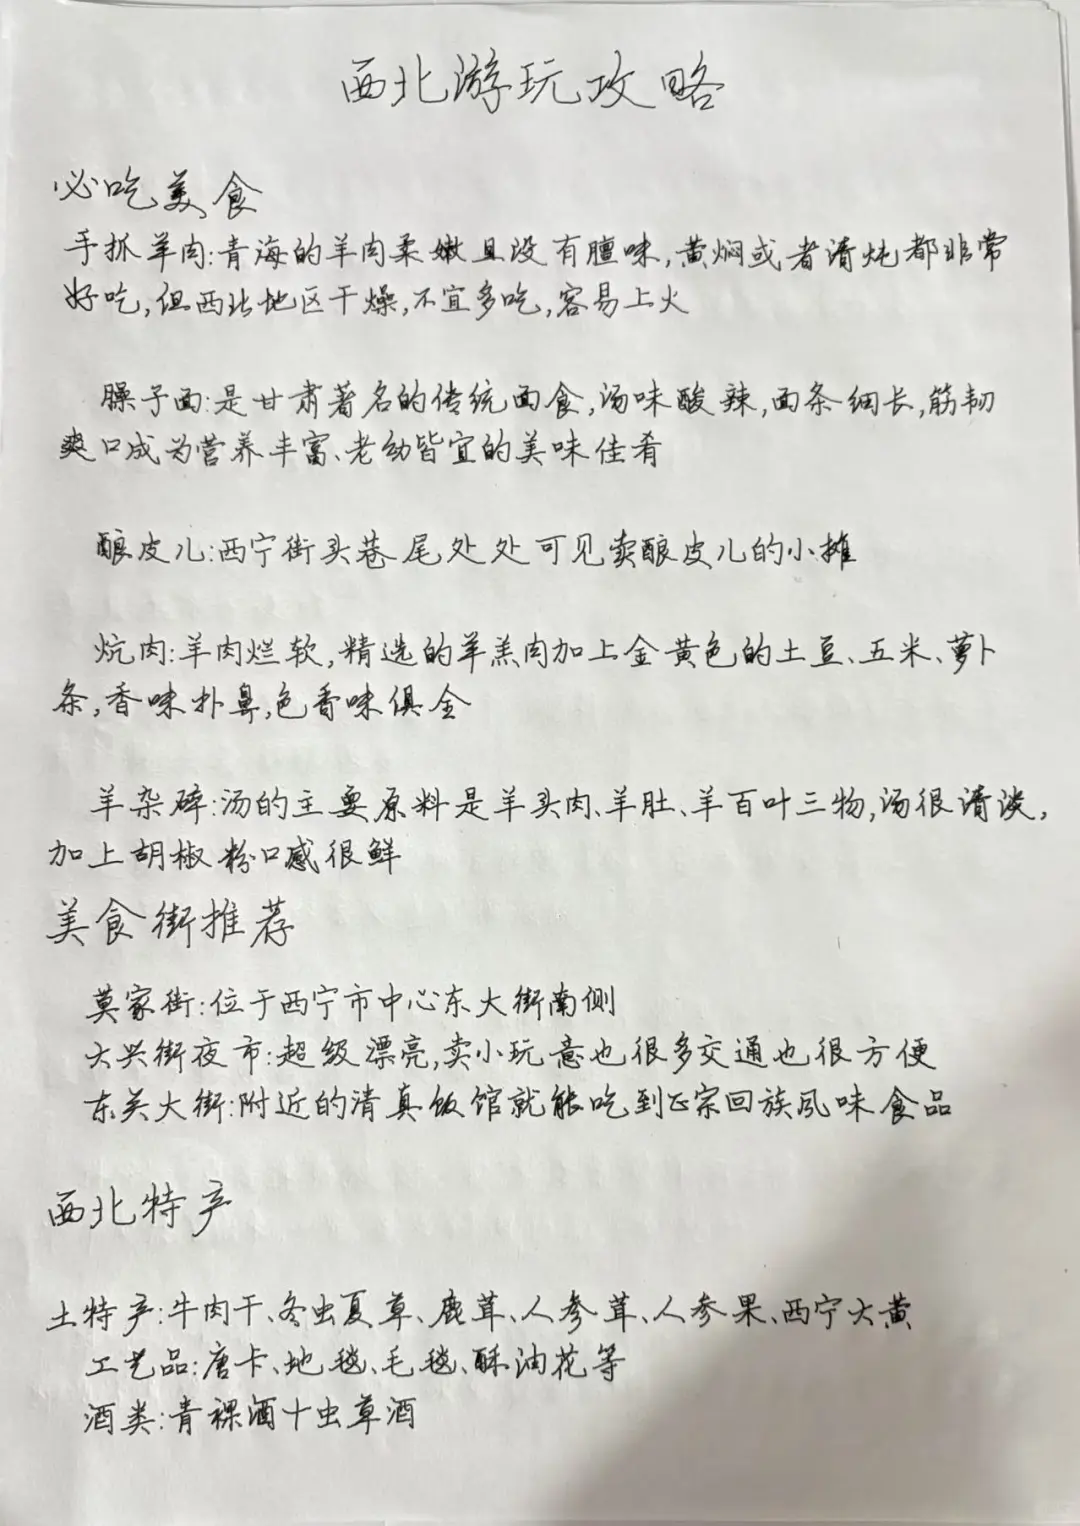 西北游玩攻略
必吃美食
手抓羊肉:青海的羊肉柔嫩且没有膻味,黄焖或者清炖都非常
好吃,但西北地区干燥,不宜多吃,容易上火
臊子面:是甘肃著名的传统面食,汤味酸辣,面条细长,筋韧
爽口成为营养丰富、老幼皆宜的美味佳肴
酿皮儿:西宁街头巷尾处处可见卖酿皮儿的小摊
炕肉:羊肉烂软,精选的羊羔肉加上金黄色的土豆、五米、萝卜
条,香味扑鼻,色香味俱全
羊杂碎:汤的主要原料是羊头肉、羊肚、羊百叶三物,汤很清淡,
加上胡椒粉口感很鲜
美食街推荐
莫家街:位于西宁市中心东大街南侧
大兴街夜市:超级漂亮,卖小玩意也很多交通也很方便
东关大街:附近的清真饭馆就能吃到正宗回族风味食品
西北特产
土特产:牛肉干、冬虫夏草、鹿茸、人参茸、人参果、西宁大黄
工艺品:唐卡、地毯、毛毯、酥油花等
酒类:青稞酒十虫草酒